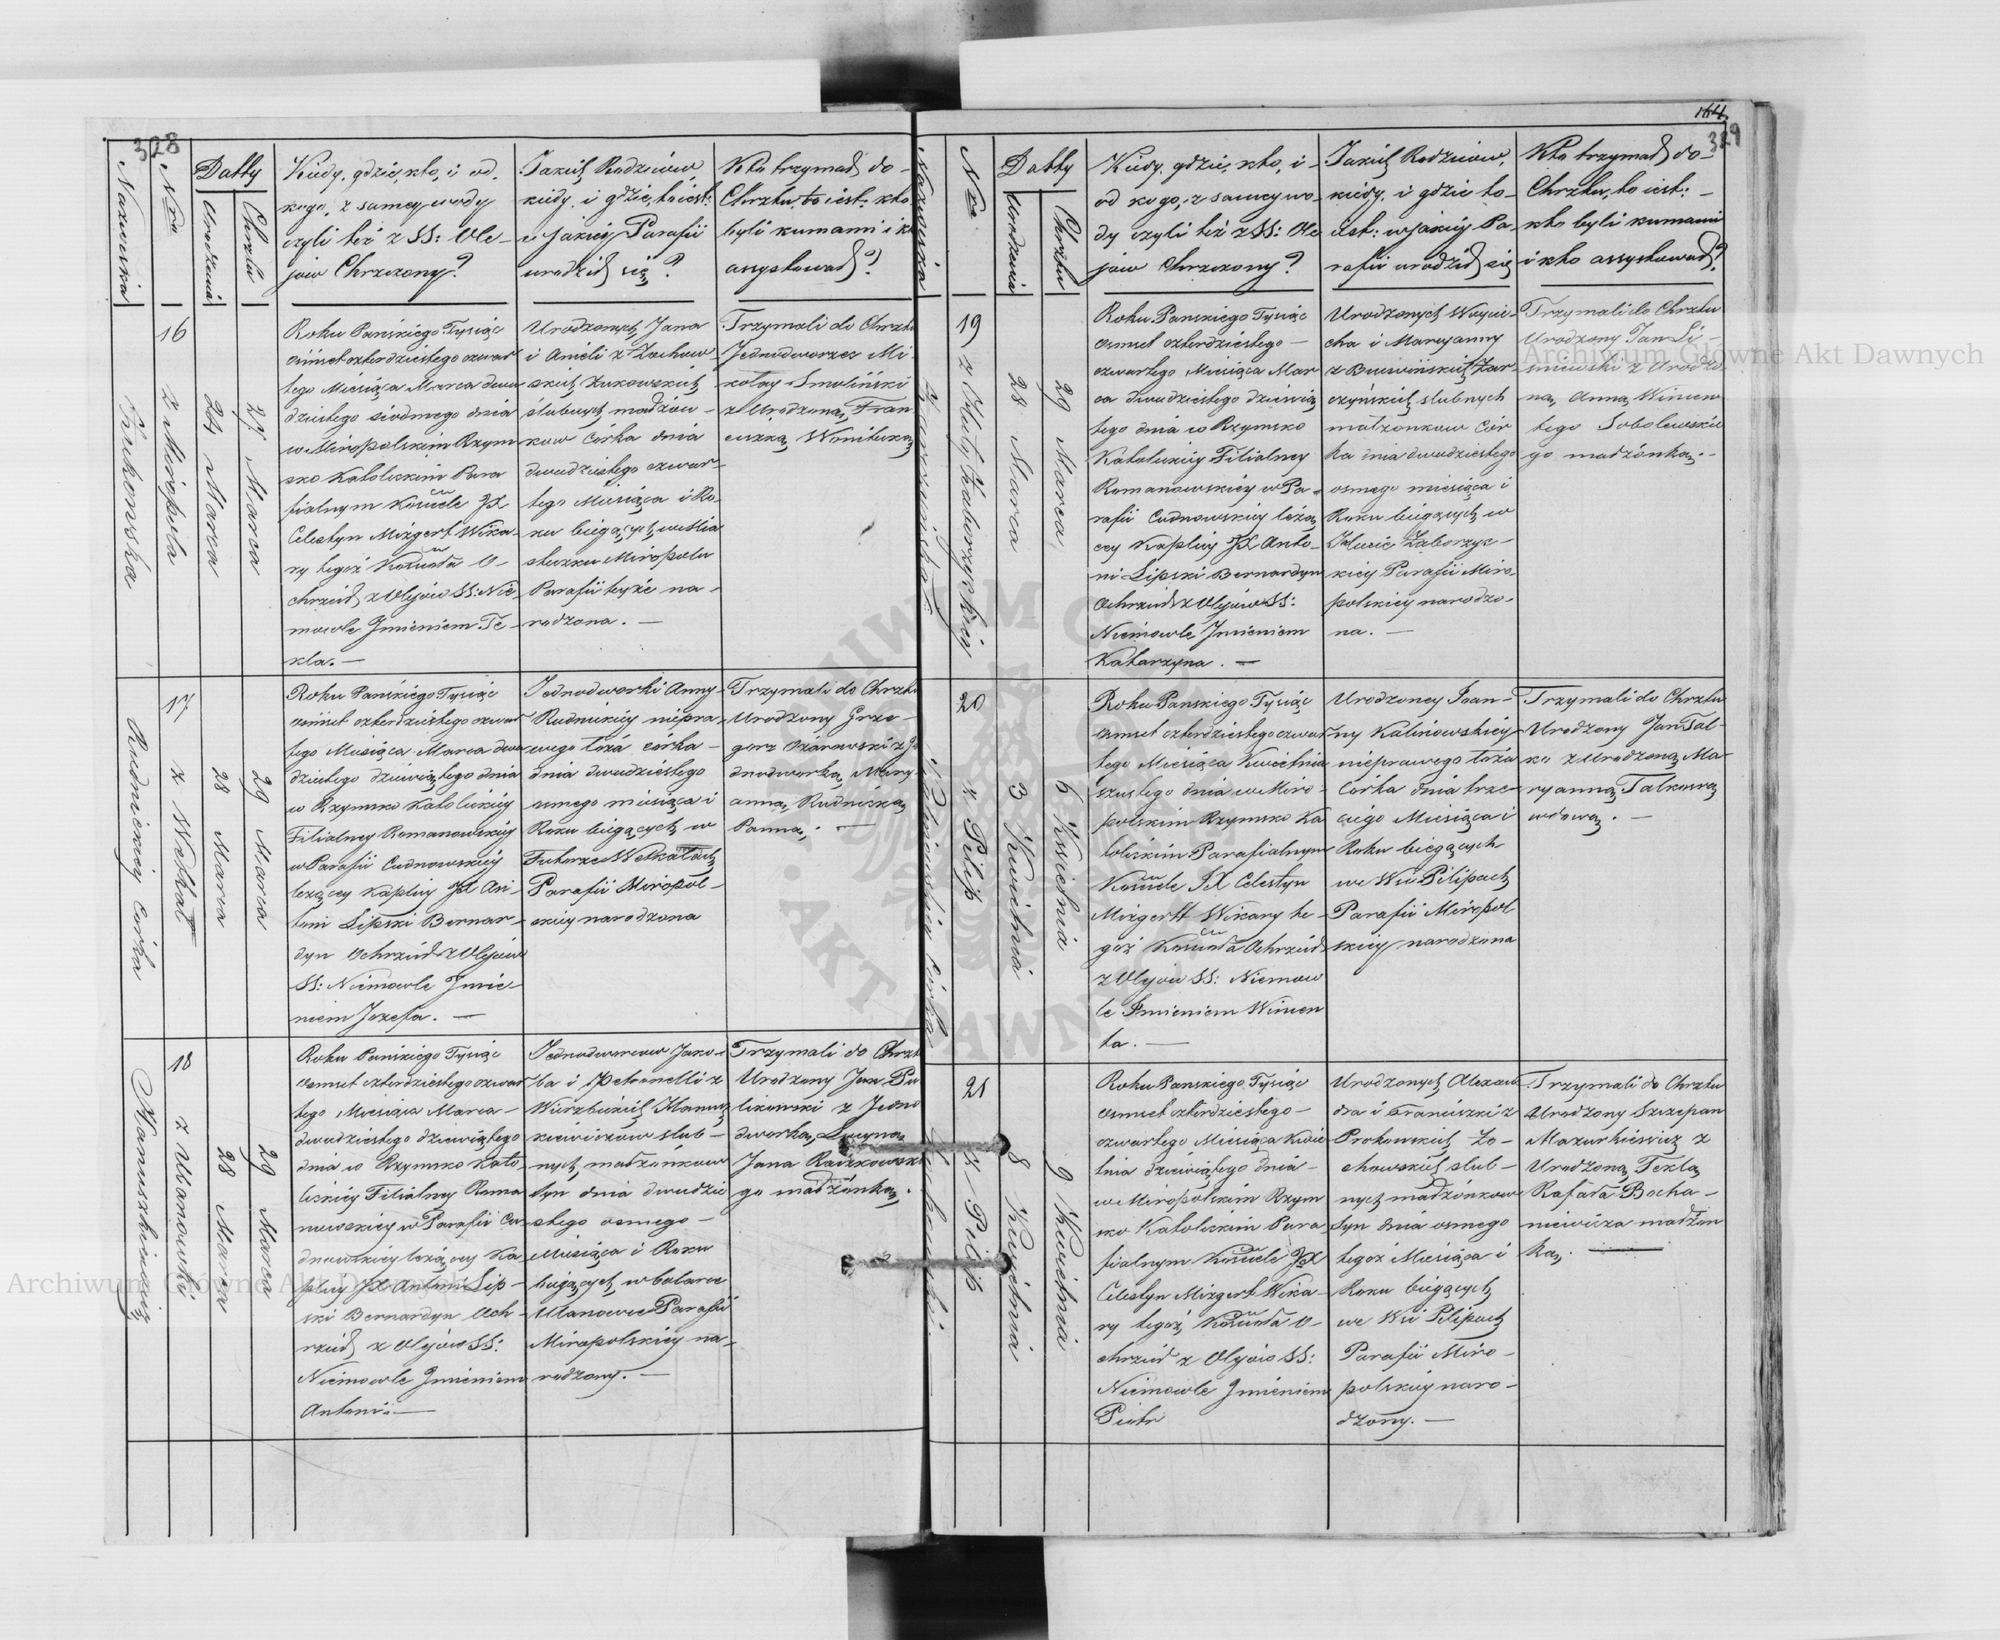 328
Nazwiska
Nro
Datty
Urodzenia
Chrztu
Kiedy, gdzie, kto, i od
kogo, z samey wody
czyli też z SS: Ole-
jow Chrzczony?
Jakich Rodziców,
kiedy i gdzie, to iest:
w jakiey Parafii
urodził się?
Kto trzymał do
Chrztu, to iest: kto
byli kumami i k
assystował?
Żukowska
16
z Miropola
24 Marca
27 Marca
Roku Pańskiego Tysiąc
ośmset czterdziestego czwar
tego Miesiąca Marca dwu
dziestego siodmego dnia
w Miropolskim Rzym
sko Katolickim Para
fialnym Kościele JX
Celestyn Mizgert Wika-
ry tegoż Kościoła O-
chrzcił z Olejow SS: Nie
mowle Jmieniem Te-
kla. —
Urodzonych Jana
i Anieli z Zachow-
skich Żukowskich
ślubnych małżon-
kow Córka dnia
dwudziestego czwar-
tego Miesiąca i Ro-
ku bieżących w Mia
steczku Miropolu
Parafii teyże na-
rodzona. —
Trzymali do Chrztu
Jednodworzec Mi-
kołay Smoliński
z Urodzoną Fran
ciszką Woniłucką
Rudnickiey Corka
17
z Wełkał
28 Marca
29 Marca
Roku Pańskiego Tysiąc
ośmset czterdziestego czwar
tego Miesiąca Marca dwu
dziestego dziewiątego dnia
w Rzymsko Katolickiey
Filialney Romanowskiey
w Parafii Cudnowskiey
leżącey Kaplicy JX An
toni Lipski Bernar-
dyn Ochrzcił z Olejow
SS: Niemowle Jmie-
niem Jozefa. —
Jednodworki Anny
Rudnickiey niepra-
wego łoża córka
dnia dwudziestego
osmego miesiąca i
Roku bieżących w
Futorze Wełkałach
Parafii Miropol-
skiey narodzona
Trzymali do Chrztu
Urodzony Grze-
gorz Ożarowski z Je
dnodworką Mary-
anną Rudnicką
Panną. —
Hanuszkiewicz
18
z Ulanowki
28 Marca
29 Marca
Roku Pańskiego Tysiąc
osmset czterdziestego czwar
tego Miesiąca Marca
dwudziestego dziewiątego
dnia w Rzymsko Kato
lickiey Filialney Roma
nowskiey w Parafii Cu
dnowskiey leżącey Ka
plicy JX Antoni Lip-
ski Bernardyn Och-
rzcił z Olejow SS:
Niemowle Jmieniem
Antoni. —
Jednodworcow Jako-
ba i Petronelli z
Wierzbickich Hanusz
kiewiczow ślub-
nych małżonkow
Syn dnia dwudzie
stego osmego
Miesiąca i Roku
bieżących w
Ulanowce Parafii
Miropolskiey na-
rodzony. —
Trzymali do Chrztu
Urodzony Jan Pu
likowski z Jedno
dworką Lucyną
Jana Raczkowski
go małżonką.
144
329
Nazwiska
Nro
Datty
Urodzenia
Chrztu
Kiedy, gdzie, kto, i
od kogo, z samey wo-
dy czyli też z SS: Ole
jow Chrzczony?
Jakich Rodzicow,
kiedy, i gdzie to
iest: w jakiey Pa-
rafii urodził się
Kto trzymał do
Chrztu, to iest:
kto byli kumami
i kto assystował?
19
z Huty Zaborzyckiey
28 Marca
29 Marca
Roku Panskiego Tysiąc
osmset czterdziestego
czwartego Miesiąca Mar
ca dwudziestego dziewią
tego dnia w Rzymsko
Katolickiey Filialney
Romanowskiey w Pa-
rafii Cudnowskiey leżą
cey Kaplicy JX Anto-
ni Lipski Bernardyn
Ochrzcił z Olejow SS:
Niemowle Jmieniem
Katarzyna. —
Urodzonych Woycie-
cha i Maryanny
z
ślubnych
małżonkow Cór
ka dnia dwudziestego
osmego miesiąca i
Roku bieżących w
Hucie Zaborzyc-
kiey Parafii Miro-
polskiey narodzo-
na. —
Trzymali do Chrztu
Urodzony Jan Li-
sniewski z Urodzo
ną Anną Wincen
tego Sobolewskie
go małżonką. —
Kalinowskiey Corka
20
z Pilip
3 Kwietnia
6 Kwietnia
Roku Panskiego Tysiąc
osmset czterdziestego czwar
tego Miesiąca Kwietnia
szostego dnia w Miro-
polskim Rzymsko Ka
tolickim Parafialnym
Kościele JX Celestyn
Mizgert Wikary te-
goż Kościoła Ochrzcił
z Olejow SS: Niemow
le Jmieniem Wincen
ta. —
Urodzoney Joan-
ny Kalinowskiey
nieprawego łoża
Córka dnia trze-
ciego Miesiąca i
Roku bieżących
we Wsi Pilipach
Parafii Miropol
skiey narodzona
Trzymali do Chrztu
Urodzony Jan Tal-
ko z Urodzoną Ma-
ryanną Talkową
wdową. —
21
z Pilip
8 Kwietnia
9 Kwietnia
Roku Panskiego Tysiąc
osmset czterdziestego
czwartego Miesiąca Kwie
tnia dziewiątego dnia
w Miropolskim Rzym
sko Katolickim Para
fialnym Kościele JX
Celestyn Mizgert Wika-
ry tegoż Kościoła O-
chrzcił z Olejow SS:
Niemowle Jmieniem
Piotr
Urodzonych Alexan
dra i Franciszki z
Prokowskich Zo-
chowskich ślub-
nych małżonkow
Syn dnia osmego
tegoż Miesiąca i
Roku bieżących
we Wsi Pilipach
Parafii Miro-
polskiey naro-
dzony. —
Trzymali do Chrztu
Urodzony Szczepan
Mazurkiewicz z
Urodzoną Teklą
Rafała Bocha-
niewicza małżon
ką. —
Archiwum Główne Akt Dawnych
Archiwum Główne Akt Dawnych